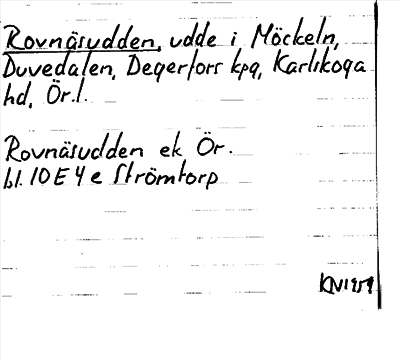 Rovnäsudden, udde i Möckeln,
Duvedalen, Degerfors kpg, Karlskoga
hd, Ör.l.
Rovnäsudden ek Ör.
bl. 10 E 4 e Strömtorp
KN1959